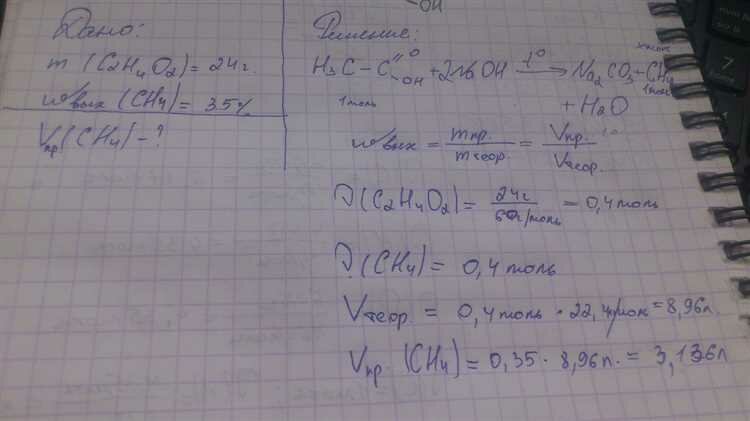 Дано:
m (C2H4O2) = 24 г.
ωвых (CH4) = 35%
Vпр(CH4) - ?
-OH
Решение:
H3C - C =O -OH + 2NaOH t° → Na2CO3 + CH4
x моль
1 моль
1 моль
+ H2O
ωвых = mпр. / mтеор. = Vпр. / Vтеор.
ν(C2H4O2) = 24г / 60г/моль = 0,4 моль
ν(CH4) = 0,4 моль
Vтеор. = 0,4 моль · 22,4л/моль = 8,96л.
Vпр (CH4) = 0,35 · 8,96л. = 3,136л